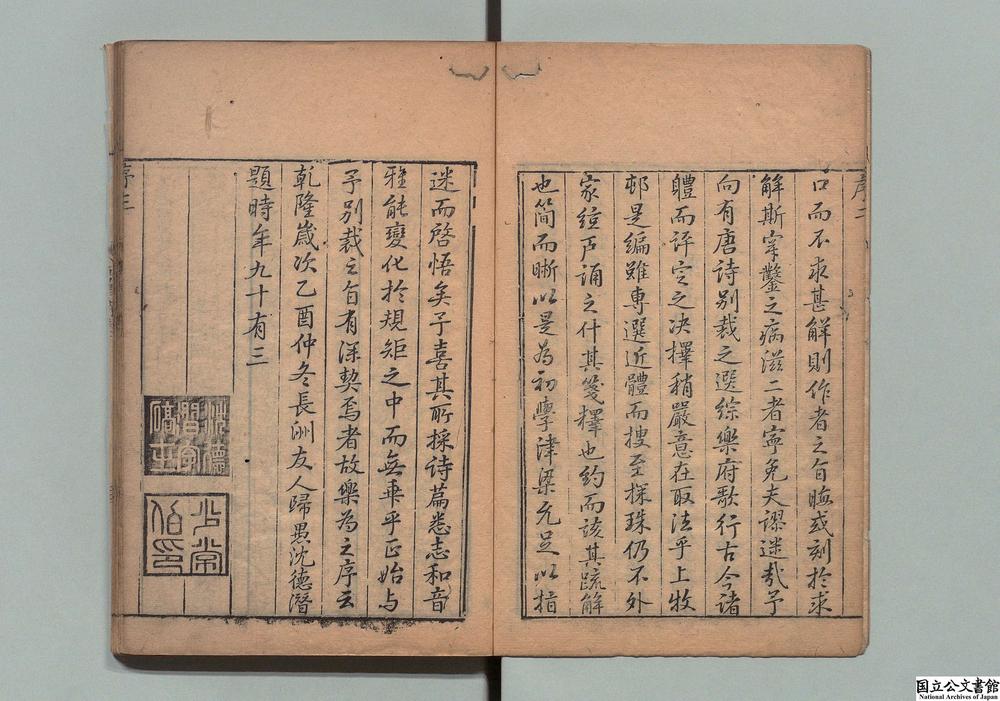 序二
口而不求甚解則作者之旨晦或刻於求
解斯穿鑿之病滋二者寧免夫謬迷哉予
向有唐詩別裁之選綜樂府歌行古今諸
體而評定之决擇稍嚴意在取法乎上牧
邨是編雖専選近體而搜至探珠仍不外
家絃户誦之什其箋釋也約而該其疏解
也簡而晰以是為初學津梁尤足以指
迷而啓悟矣予喜其所採诗篇悉志和音
雅能變化於規矩之中而無乖乎正始与
予別裁之旨有深契焉者故樂為之序云
乾隆歲次乙酉仲冬長洲友人歸愚沈德潛
題時年九十有三
序三
国立公文書館
National Archives of Japan